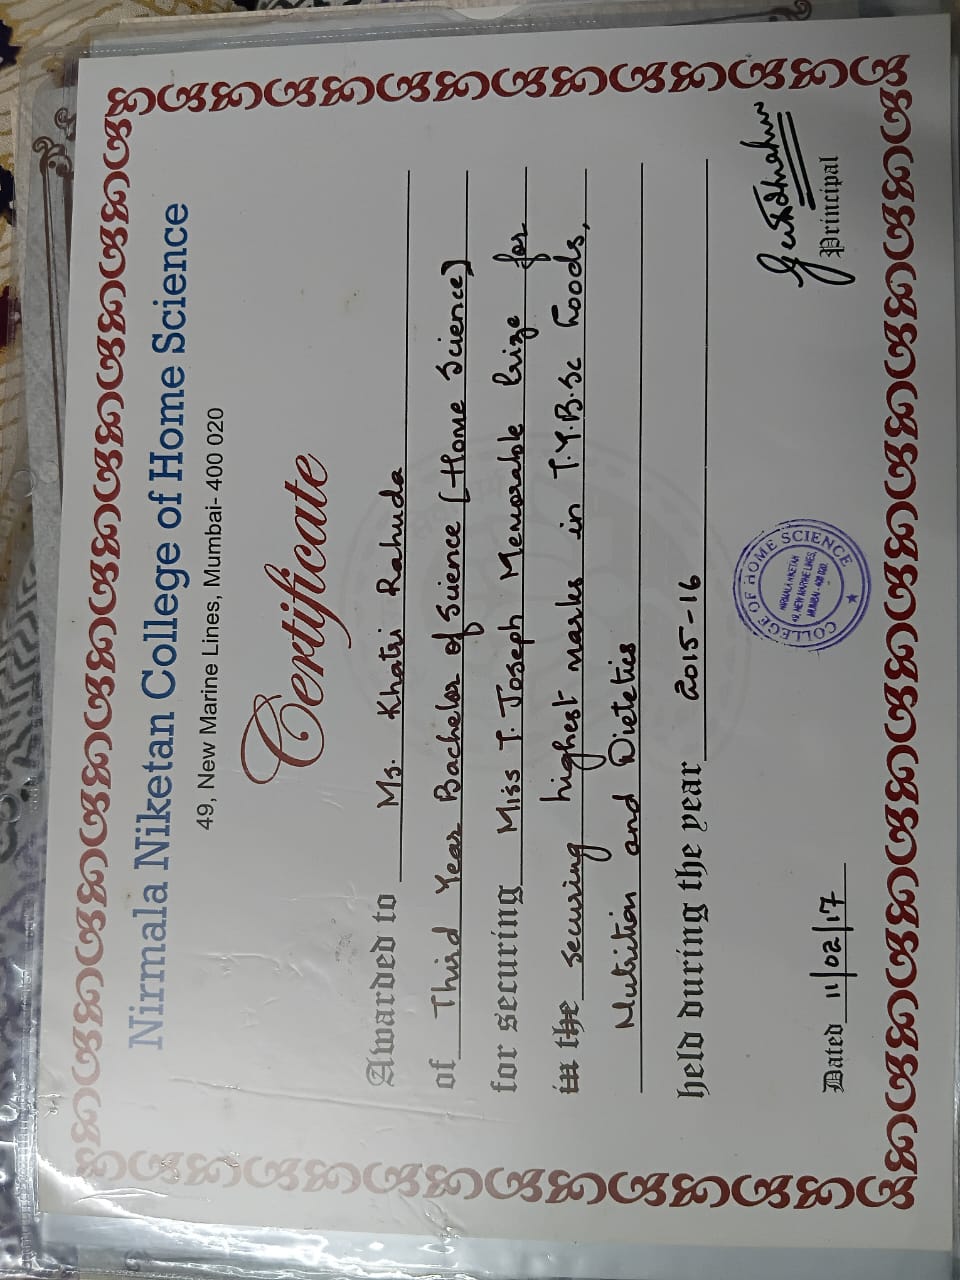 Nirmala Niketan College of Home Science
49, New Marine Lines, Mumbai- 400 020
Certificate
Awarded to Ms. Khatri Rahuda
of Third Year Bachelor of Science (Home Science)
for securing Miss T. Joseph Memorable Prize for
in the securing highest marks in T.Y.B.Sc Foods,
Nutrition and Dietetics
held during the year 2015-16
COLLEGE OF HOME SCIENCE
NIRMALA NIKETAN
49, NEW MARINE LINES,
MUMBAI - 400 020.
Dated 11/02/17
Principal